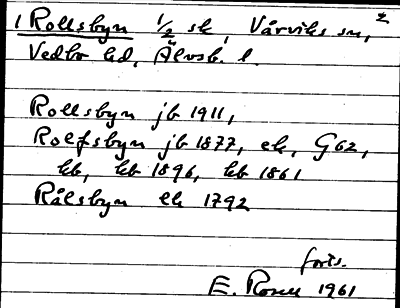 1 Rollsbyn 1/2 sk, Vårviks sn, 2
Vedbo hd, Älvsb. l.
Rollsbyn jb 1911,
Rolfsbyn jb 1877, ek, G62,
kb, kb 1896, kb 1861
Rålsbyn ek 1792
forts.
E. Rosen 1961